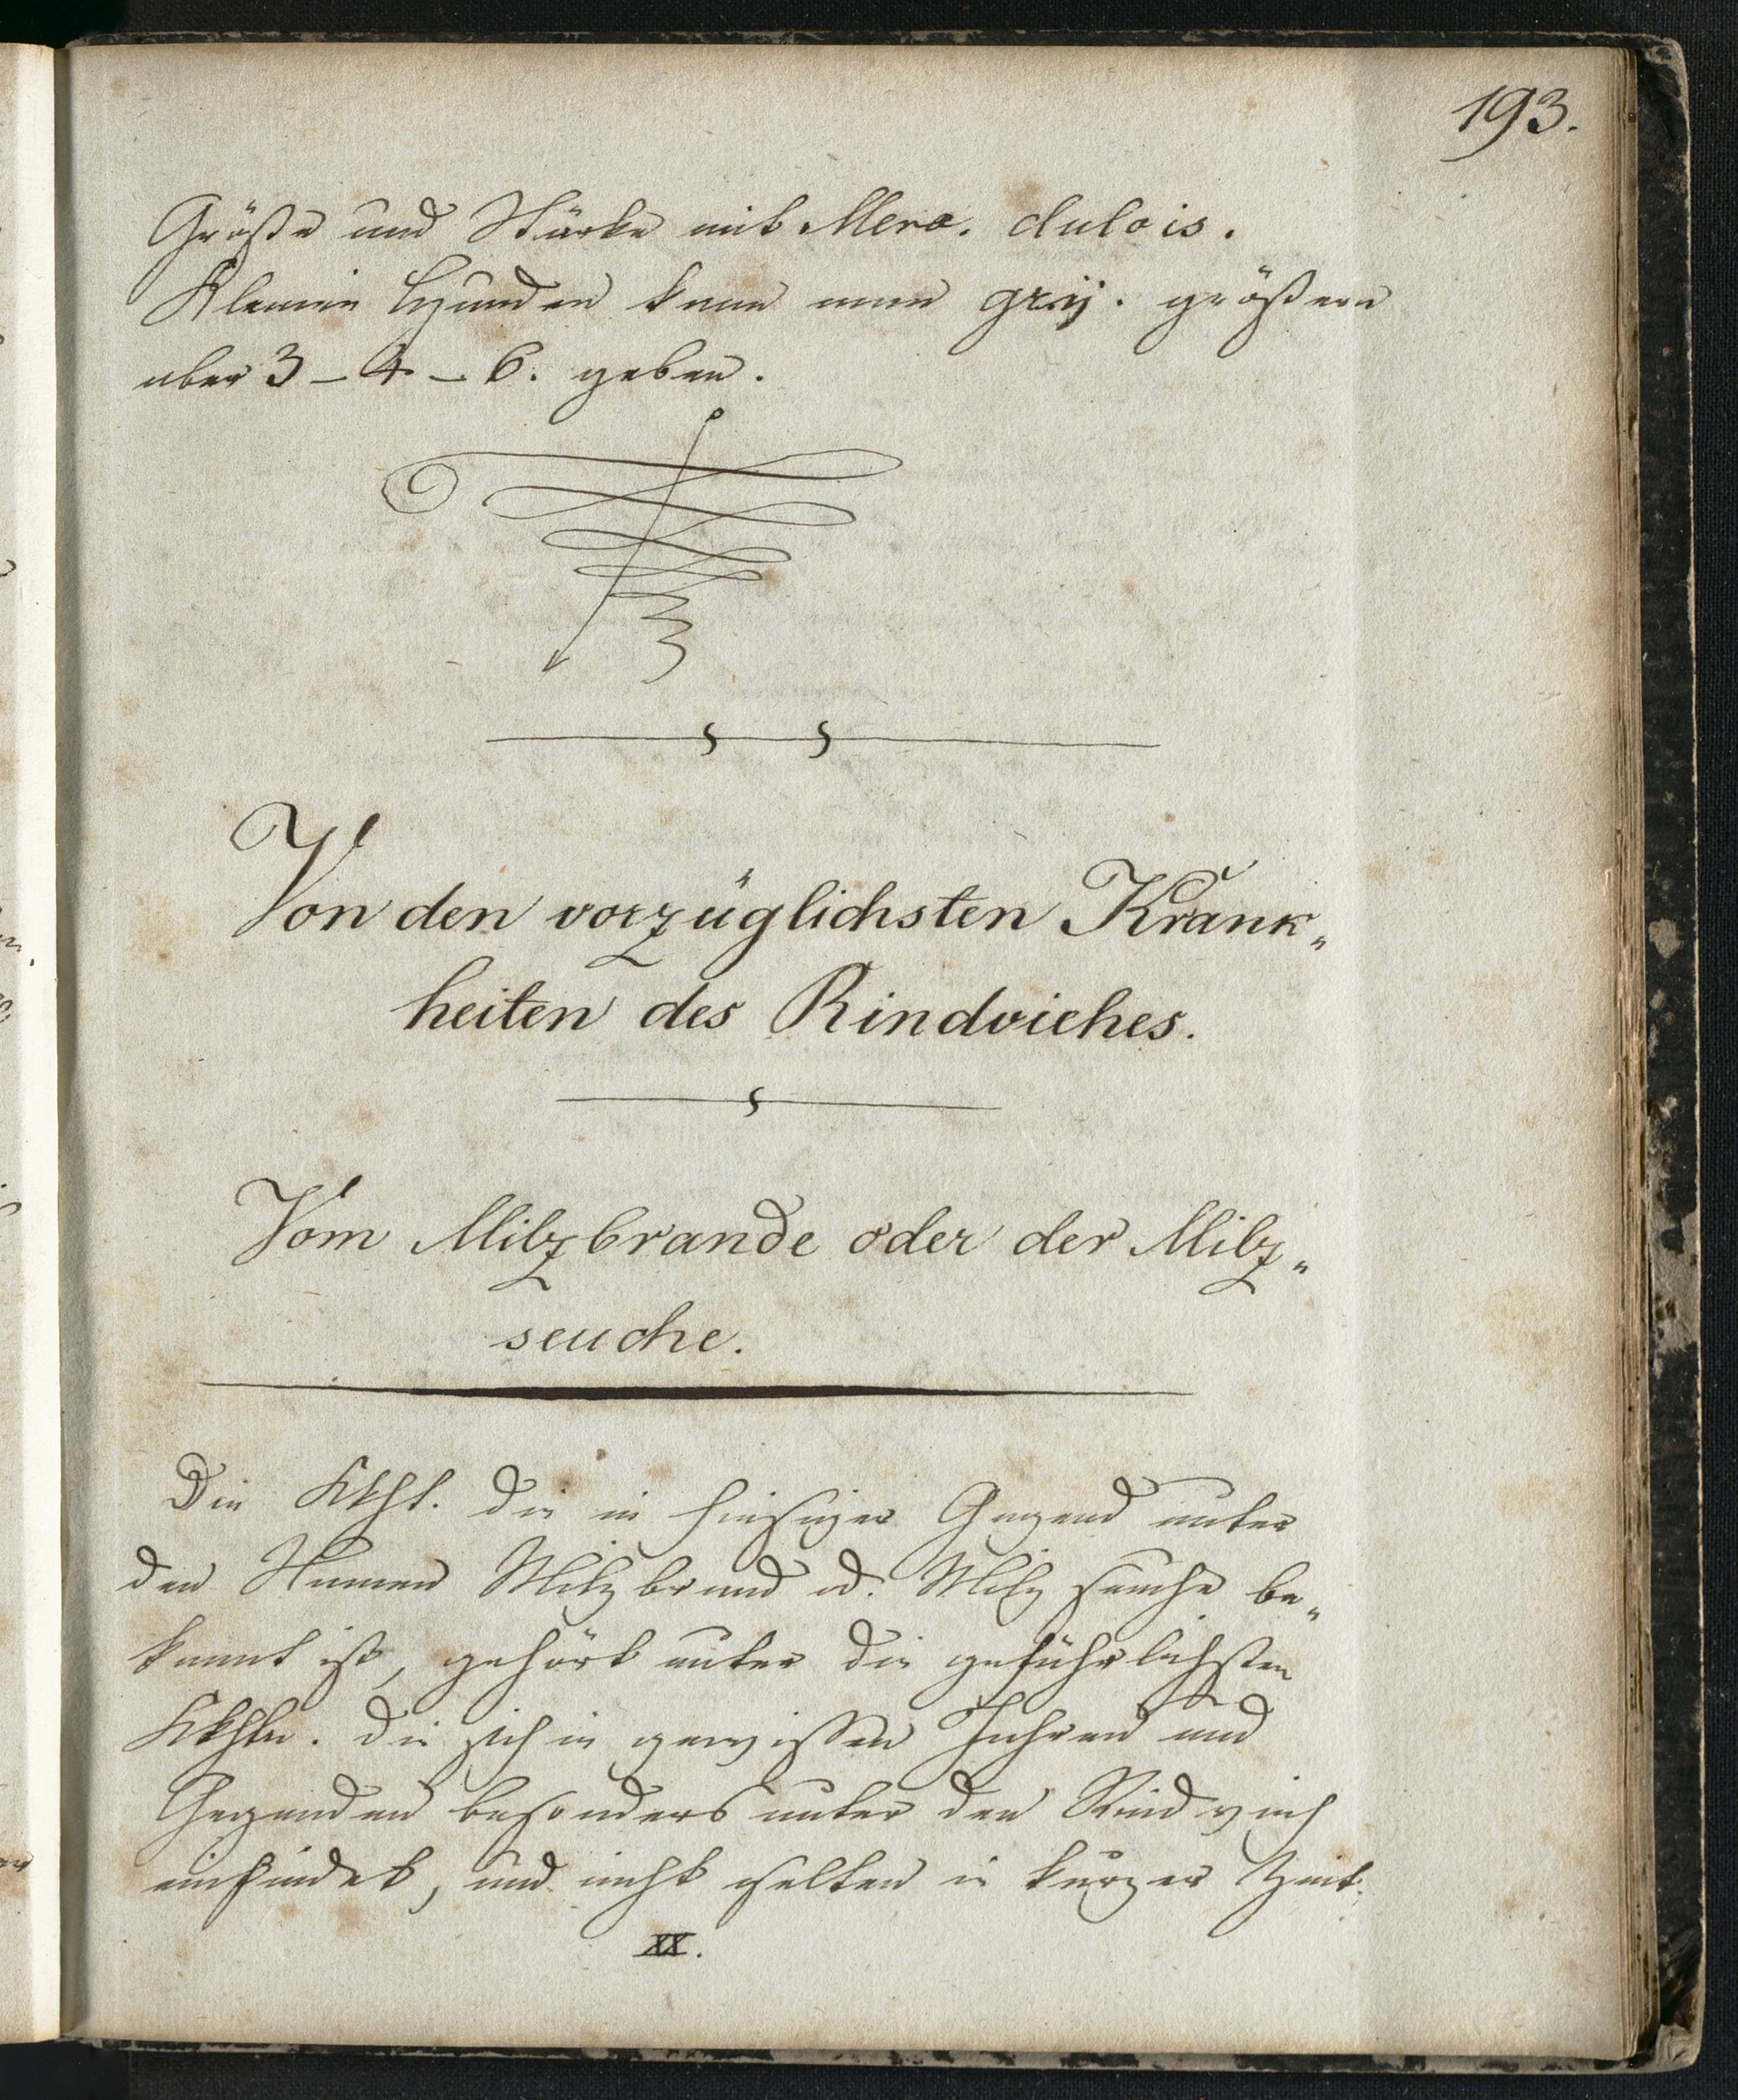 193.
Größe und Stärke mit Merc. dulcis.
Kleinen Hunden kann man gr.ij. größern
aber 3 – 4 – 6. geben.
Von den vorzüglichsten Krank„
heiten des Rindviehes.
Vom Milzbrande oder der Milz„
seuche.
Die Kkht. die in hiesiger Gegend unter
den Namen Milzbrand od. Milzseuche be„
kannt ist, gehört unter die gefährlichsten
Kkhtn. die sich in gewissen Jahren und
Gegenden besonders unter den Rindvieh
einfindet, und nicht selten in kurzer Zeit
XX.